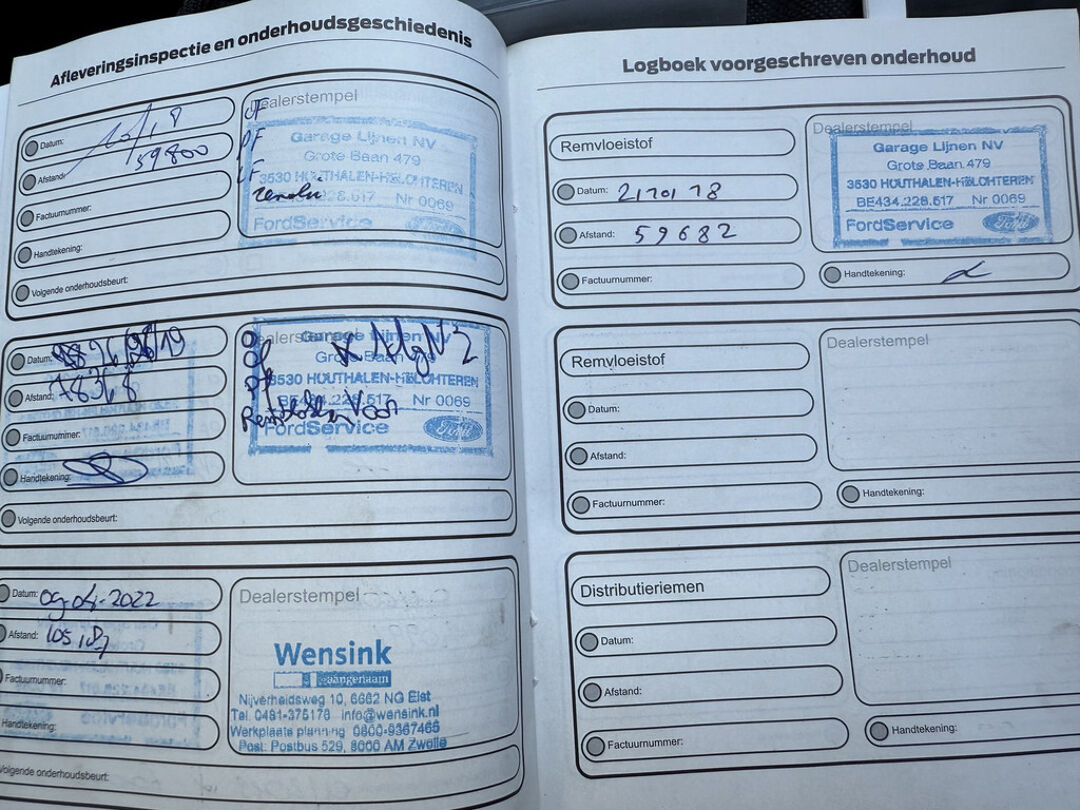 Afleveringsinspectie en onderhoudsgeschiedenis
Datum:
Afstand: 59800
Factuurnummer:
Handtekening:
Volgende onderhoudsbeurt:
Dealerstempel
Garage Lijnen NV
Grote Baan 479
3530 HOUTHALEN-HELCHTEREN
Nr 0069
FordService
Ford
Datum: 26/08/19
Afstand: 78368
Factuurnummer:
Handtekening:
Volgende onderhoudsbeurt:
Garage Lijnen NV
Grote Baan 479
3530 HOUTHALEN-HELCHTEREN
Nr 0069
FordService
Ford
Datum: 09-04-2022
Afstand:
Factuurnummer:
Handtekening:
Volgende onderhoudsbeurt:
Dealerstempel
Wensink
aangenaam
Nijverheidsweg 10, 6662 NG Elst
Tel. 0481-375178 info@wensink.nl
Werkplaats planning 0800-9367465
Post: Postbus 529, 8000 AM Zwolle
Logboek voorgeschreven onderhoud
Remvloeistof
Datum:
Afstand: 59682
Factuurnummer:
Dealerstempel
Garage Lijnen NV
Grote Baan 479
3530 HOUTHALEN-HELCHTEREN
BE434.228.517 Nr 0069
FordService
Ford
Handtekening:
Remvloeistof
Datum:
Afstand:
Factuurnummer:
Dealerstempel
Handtekening:
Distributieriemen
Datum:
Afstand:
Factuurnummer:
Dealerstempel
Handtekening: